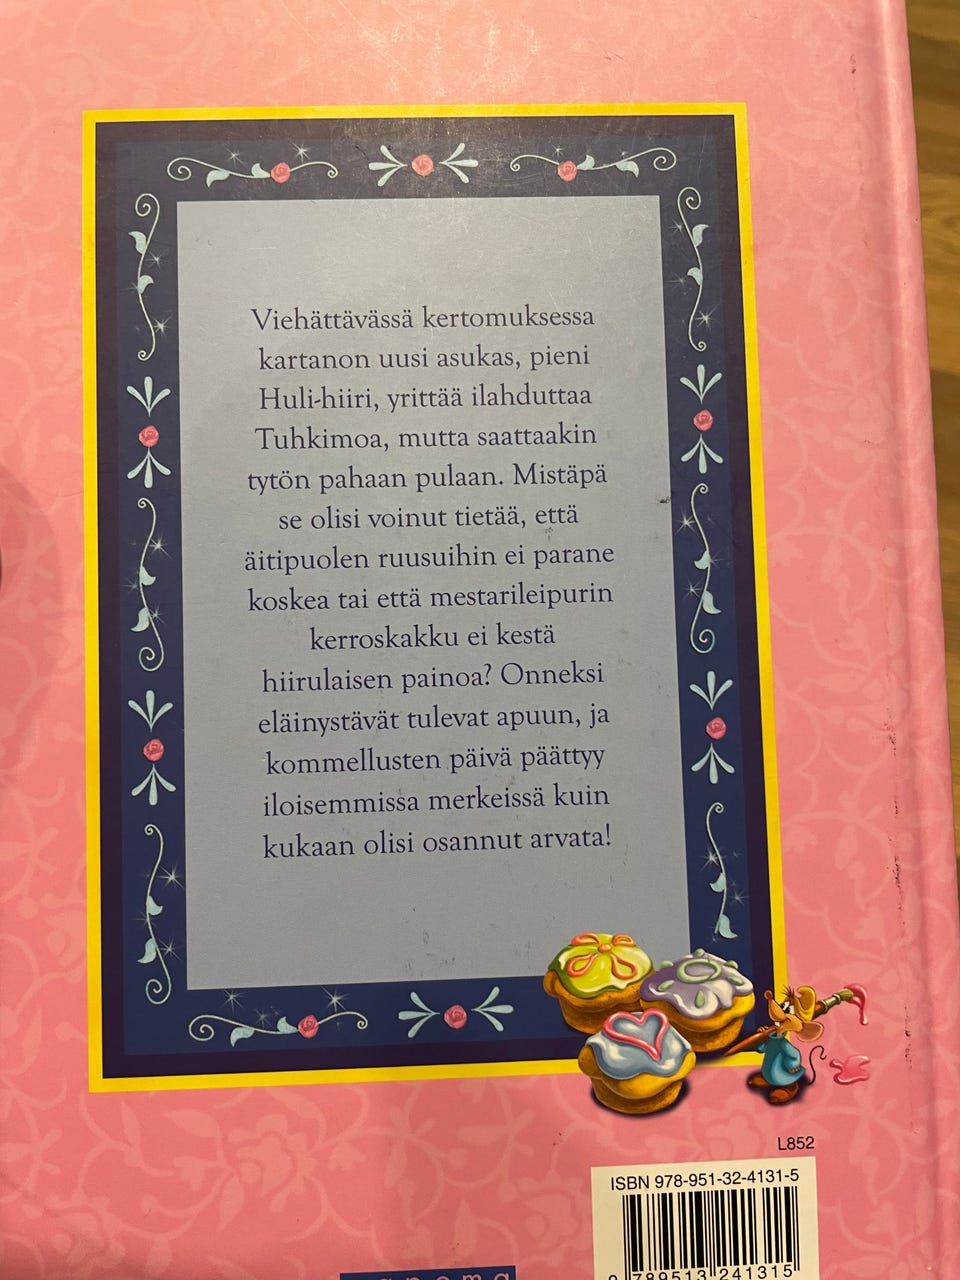 Viehättävässä kertomuksessa
kartanon uusi asukas, pieni
Huli-hiiri, yrittää ilahduttaa
Tuhkimoa, mutta saattaakin
tytön pahaan pulaan. Mistäpä
se olisi voinut tietää, että
äitipuolen ruusuihin ei parane
koskea tai että mestarileipurin
kerroskakku ei kestä
hiirulaisen painoa? Onneksi
eläinystävät tulevat apuun, ja
kommellusten päivä päättyy
iloisemmissa merkeissä kuin
kukaan olisi osannut arvata!
L852
ISBN 978-951-32-4131-5
9 789513 241315